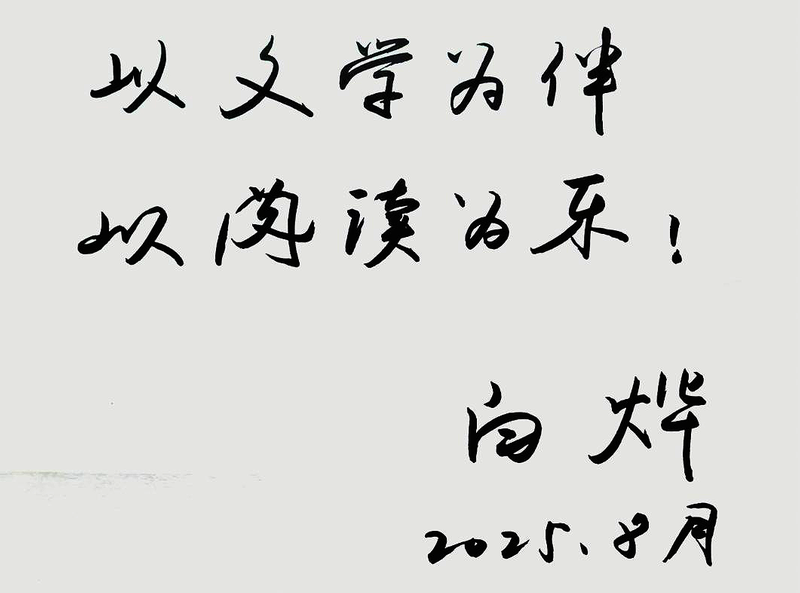 以文学为伴
以阅读为乐！
白烨
2025.8月